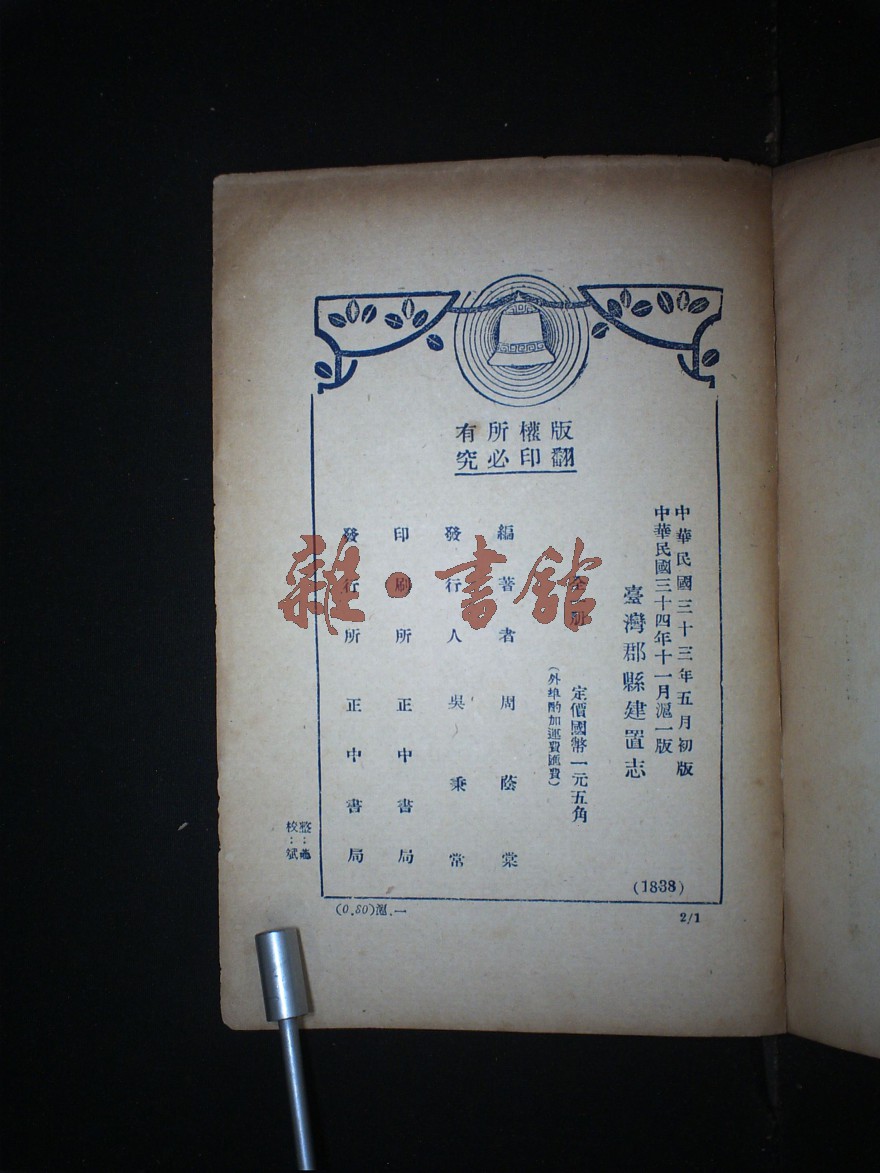 版權所有
翻印必究
中華民國三十三年五月初版
中華民國三十四年十一月滬一版
臺灣郡縣建置志
全一册
定價國幣一元五角
(外埠酌加運費匯費)
編著者 周蔭棠
發行人 吳秉常
印刷所 正中書局
發行所 正中書局
(1838)
整:
校:斌
(0.80)滬.一
2/1
雜·書館